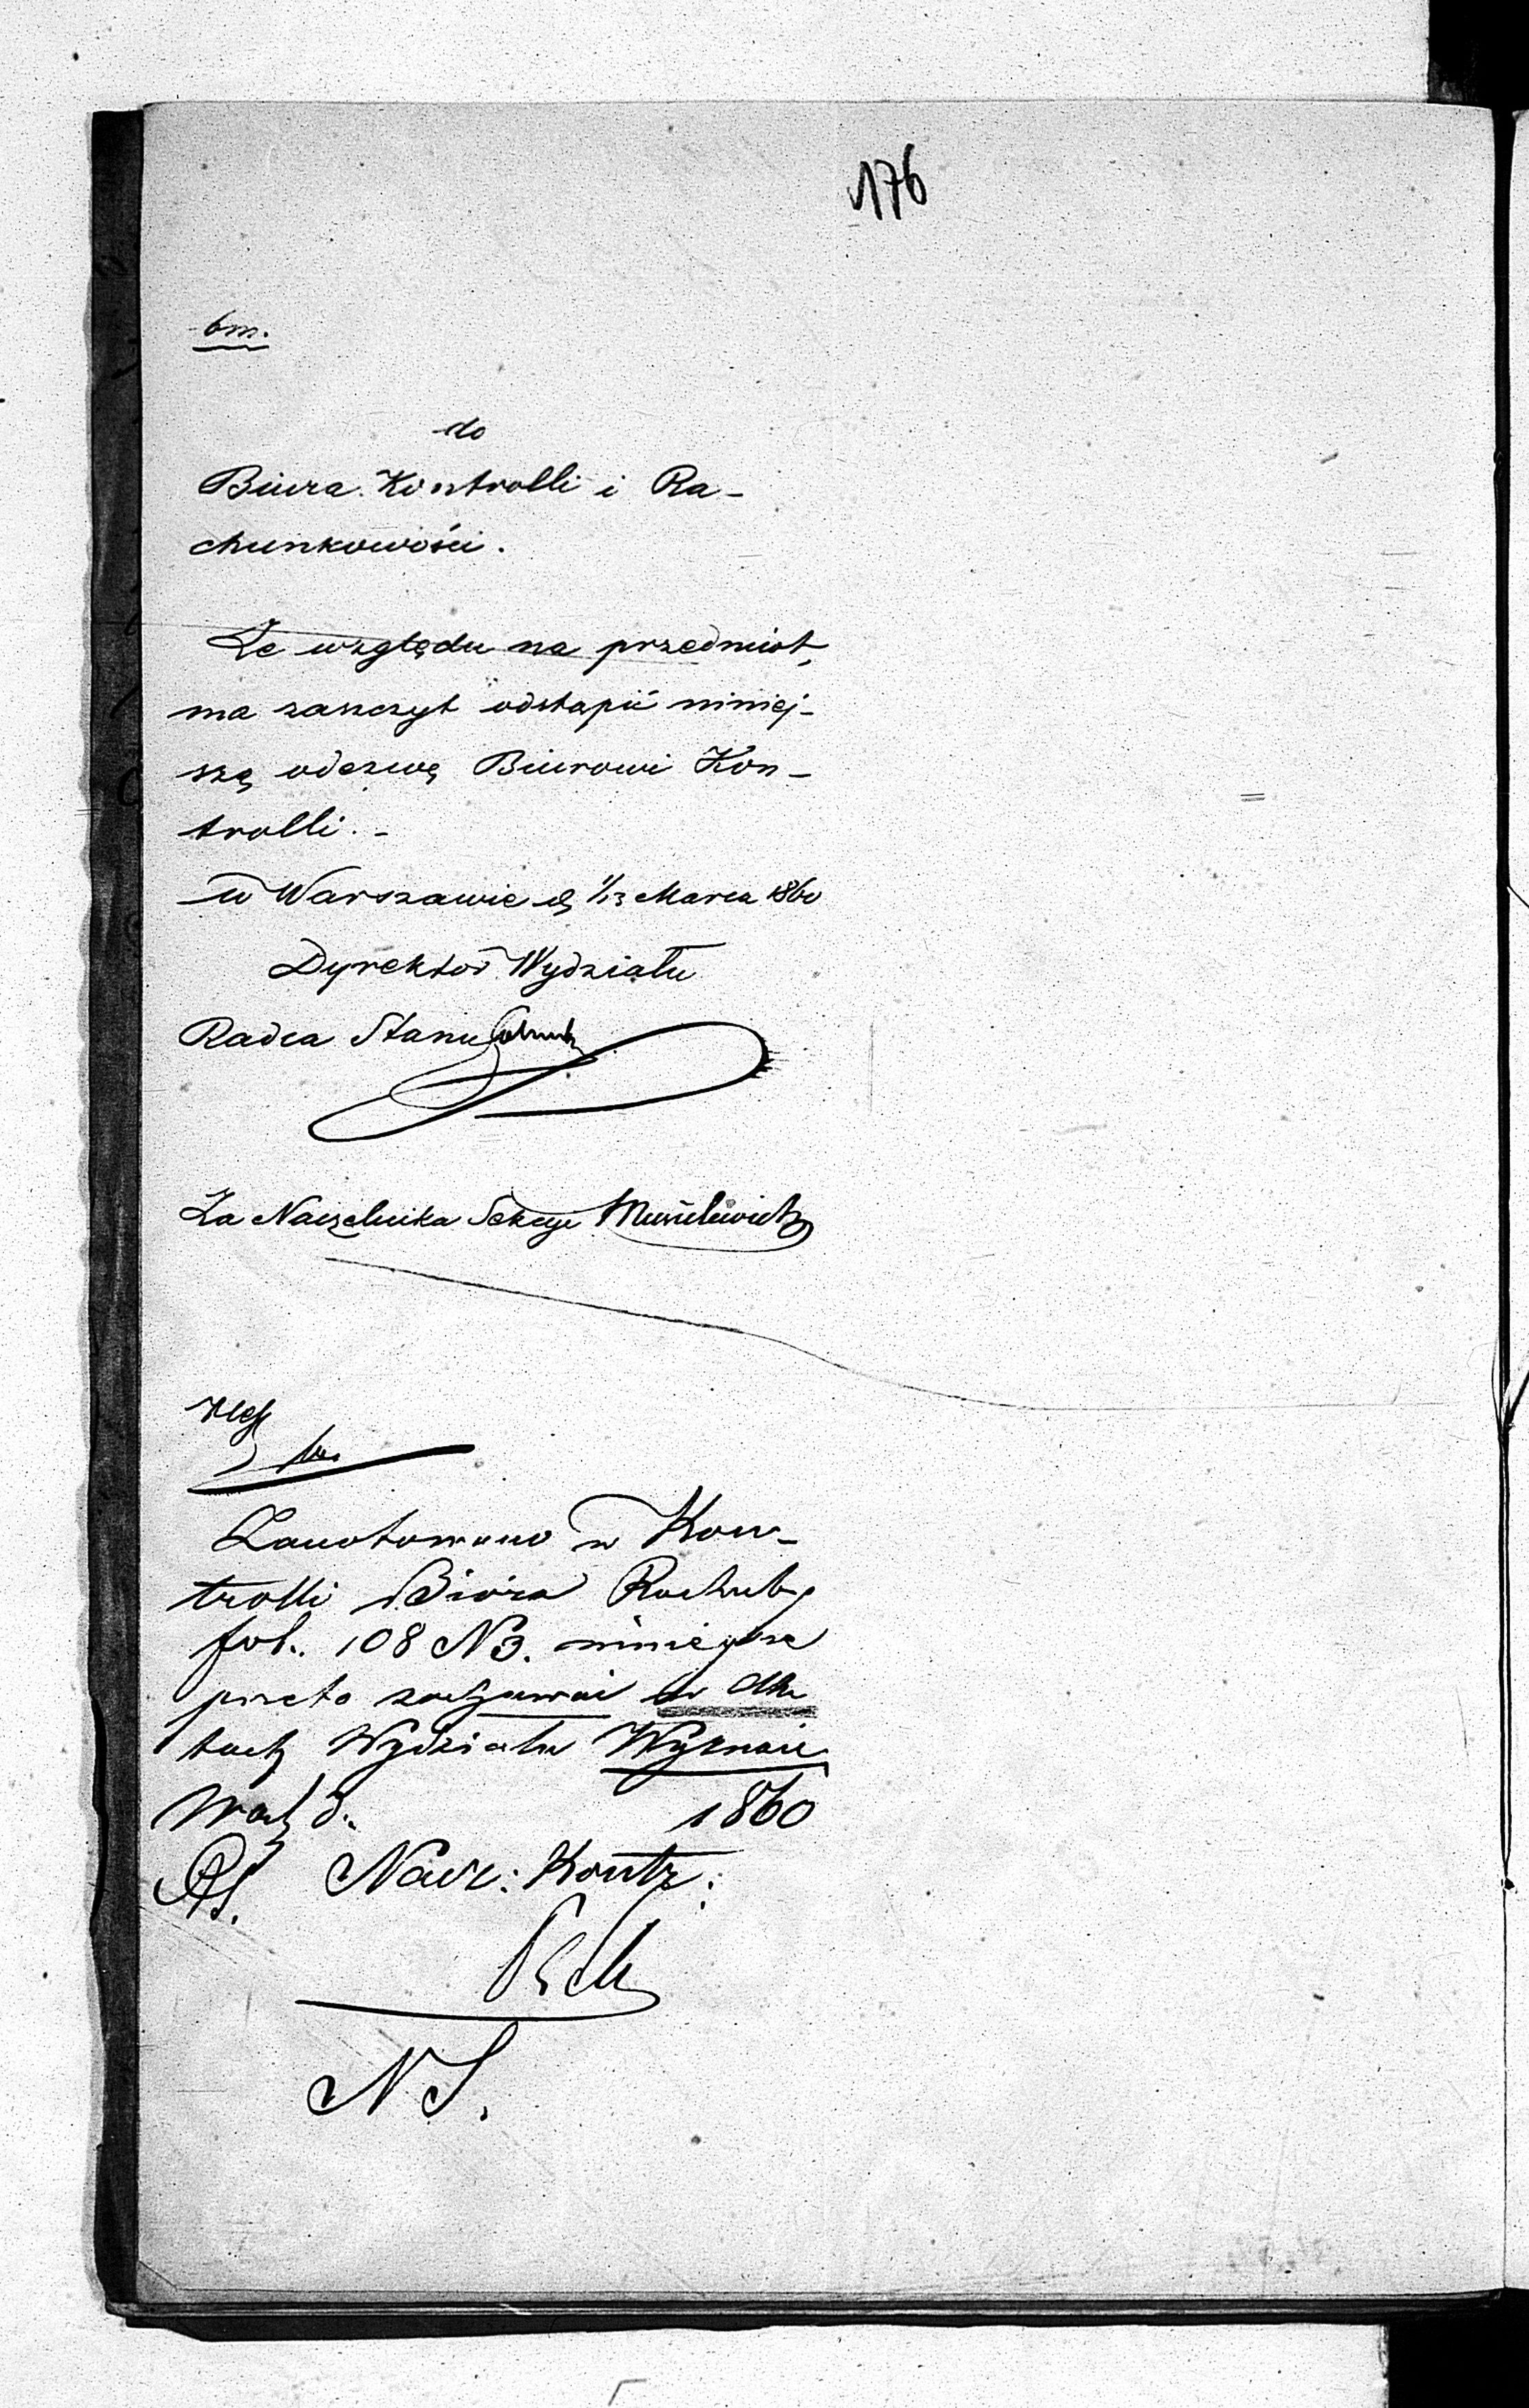 176
bm.
do
Biura Kontrolli i Ra-
chunkowości.
Ze względu na przedmiot,
ma zaszczyt odstąpić niniej-
szą odezwę Biurowi Kon-
trolli. -
w Warszawie d. 1/13 Marca 1860
Dyrektor Wydziału
Radca Stanu
Za Naczelnika Sekcyi
Zanotowano w Kon-
trolli Bióra Rachuby
fol. 108 N 3. niniejsze
pismo zachować w Ak
tach Wydziału Wyznań
d. 1860
Nacz: Kontr:
N S.